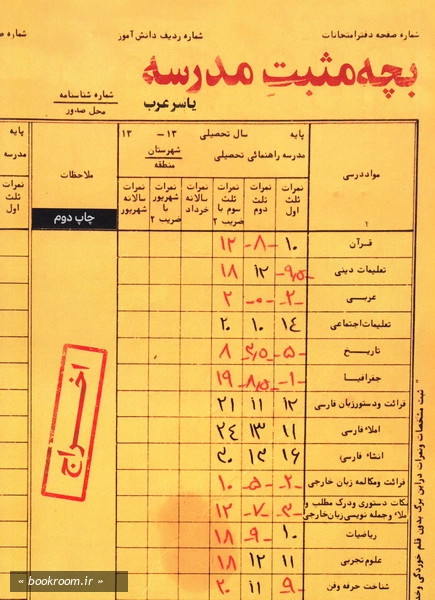 شماره صفحه دفتر امتحانات
شماره ردیف دانش آموز
شماره ص
بچه مثبتِ مدرسه
یاسر عرب
شماره شناسنامه
محل صدور
مواد درسی
۱
پایه سال تحصیلی ۱۳ – ۱۳
مدرسه راهنمائی تحصیلی شهرستان
منطقه
نمرات ثلث اول
نمرات ثلث دوم
نمرات ثلث سوم با ضریب ۲
نمرات سالانه خرداد
نمرات شهریور با ضریب ۲
نمرات سالانه شهریور
ملاحظات
پایه
مدرسه
نمرات ثلث اول
چاپ دوم
قرآن ۱۰ -۸- ۱۲
تعلیمات دینی -۹٫۵- ۱۲ ۱۸
عربی -۲- -۰- ۲
تعلیمات اجتماعی ۱۴ ۱۰ ۲۰
تاریخ -۵- -۳٫۵- ۸
جغرافیا -۱- -۸٫۵- ۱۹
قرائت و دستور زبان فارسی ۱۲ ۱۱ ۲۱
املاء فارسی ۱۱ ۱۳ ۲۴
انشاء فارسی ۱۶ ۱۳ ۳۰
قرائت و مکالمه زبان خارجی -۲- -۵- ۱۰
نکات دستوری و درک مطلب و
املاء و جمله نویسی زبان خارجی -۳- -۷- ۱۲
ریاضیات ۱۰ -۹- ۱۸
علوم تجربی ۱۱ ۱۲ ۱۸
شناخت حرفه و فن -۹- ۱۱ ۲۰
اخراج
ثبت مشخصات و نمرات در این برگ بدون قلم خوردگی و خد
« bookroom.ir »